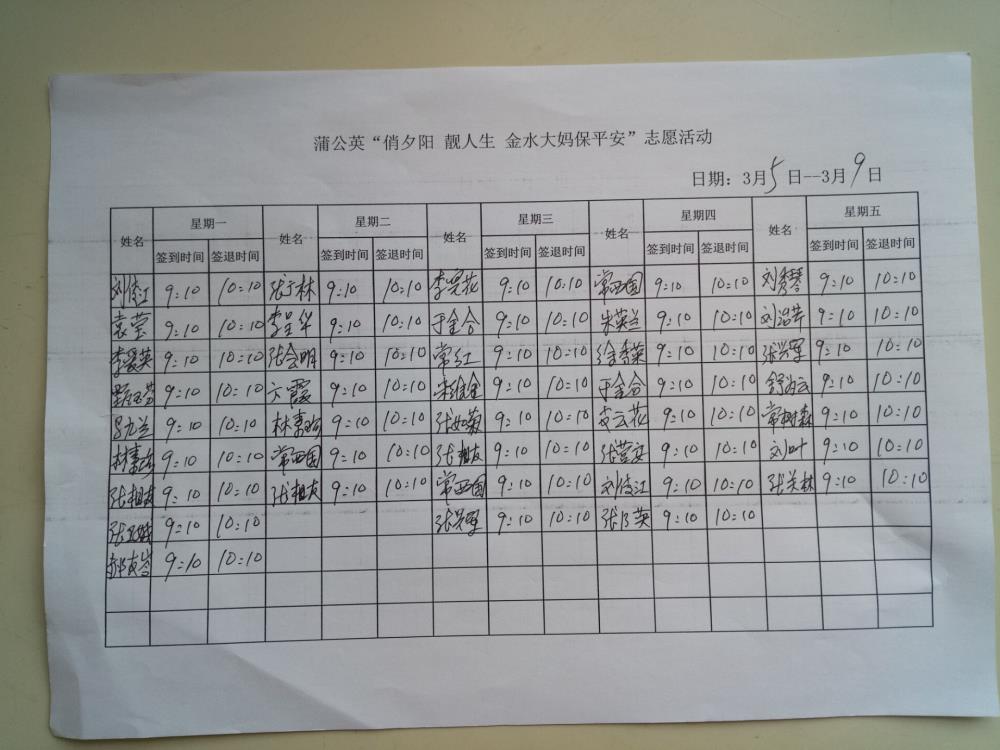 蒲公英“俏夕阳 靓人生 金水大妈保平安”志愿活动
日期：3月5日--3月9日
姓名 星期一 姓名 星期二 姓名 星期三 姓名 星期四 姓名 星期五
签到时间 签退时间 签到时间 签退时间 签到时间 签退时间 签到时间 签退时间 签到时间 签退时间
刘俊江 9:10 10:10 张广林 9:10 10:10 9:10 10:10 常西国 9:10 10:10 刘秀琴 9:10 10:10
袁莹 9:10 10:10 9:10 10:10 于金合 9:10 10:10 朱英兰 9:10 10:10 9:10 10:10
李爱英 9:10 10:10 张会明 9:10 10:10 常红 9:10 10:10 徐秀英 9:10 10:10 张兴军 9:10 10:10
9:10 10:10 方霞 9:10 10:10 9:10 10:10 于金合 9:10 10:10 9:10 10:10
9:10 10:10 9:10 10:10 张如菊 9:10 10:10 皮云花 9:10 10:10 常树森 9:10 10:10
9:10 10:10 常西国 9:10 10:10 张相友 9:10 10:10 9:10 10:10 刘叶 9:10 10:10
张相友 9:10 10:10 张相友 9:10 10:10 常西国 9:10 10:10 刘俊江 9:10 10:10 张关林 9:10 10:10
9:10 10:10 张兴军 9:10 10:10 9:10 10:10
9:10 10:10